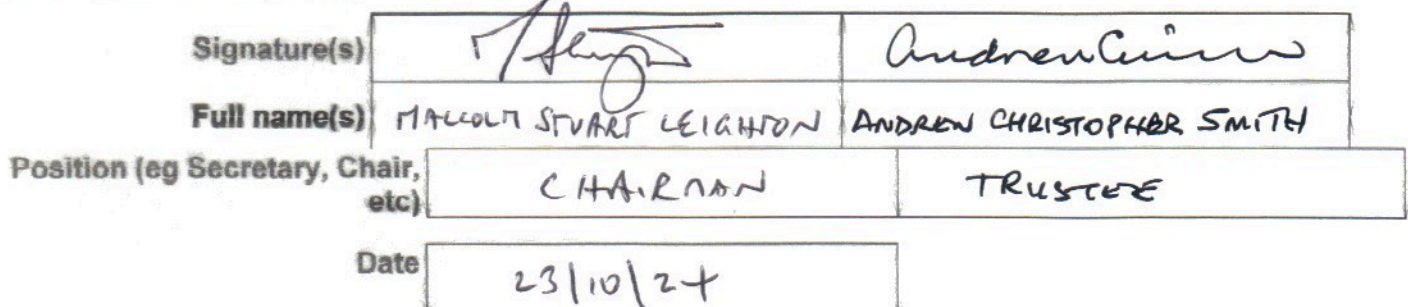 Signature(s)
Full name(s) MALCOLM STUART LEIGHTON ANDREW CHRISTOPHER SMITH
Position (eg Secretary, Chair,
etc) CHAIRMAN TRUSTEE
Date 23/10/24